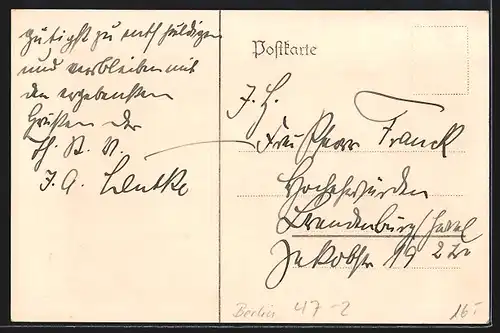 gütigst zu entschuldigen
und verbleiben mit
den ergebensten
Grüßen der
Th. St. V.
J. A. Lentke
Postkarte
J. H.
Frau Pfarr Franck
Hochehrwürden
Brandenburg/Havel
Jakobstr 19 2 Tr
Berlin 47-2
16.-